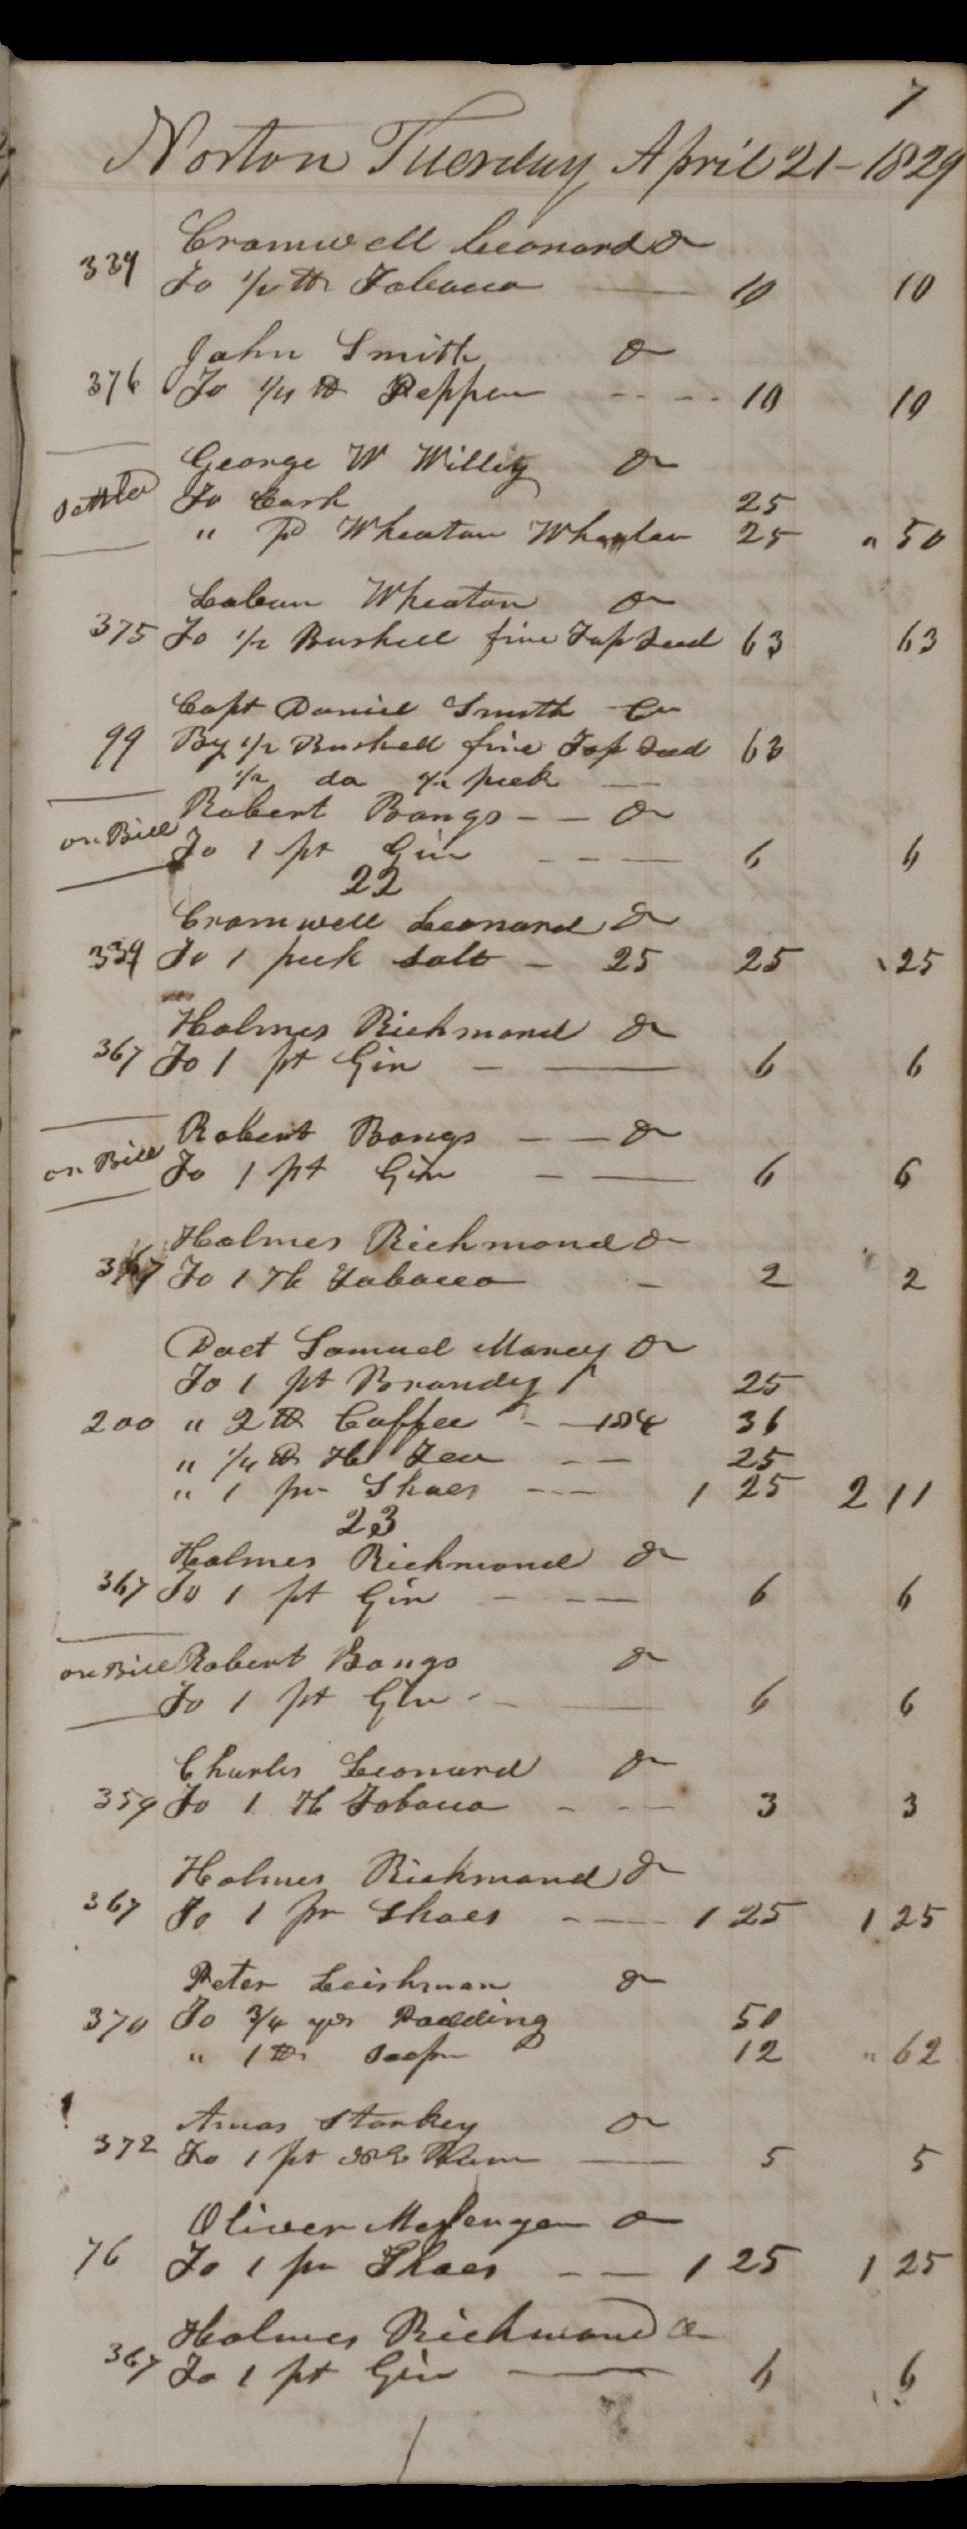 7
Norton Tuesday April 21 - 1829
Cromwell Leonard Dr
339 To 1/2 lb Tobacco 10 10
John Smith Dr
376 To 1/4 lb Pepper 10 10
George W Willey Dr
Settled To Cash 25
" pd Wheaton 25 " 50
Laban Wheaton Dr
375 To 1/2 Bushell fine Top Seed 63 63
Capt Daniel Smith Cr
99 By 1/2 Bushell fine Top Seed 63
1/2 do 1/2 peck
Robert Bangs - - Dr
on Bill To 1 pt Gin 6 6
22
Cromwell Leonard Dr
339 To 1 peck Salt - 25 25 25
Holmes Richmond Dr
367 To 1 pt Gin - 6 6
Robert Bangs - - Dr
on Bill To 1 pt Gin - 6 6
Holmes Richmond Dr
367 To 1 Tobacco - 2 2
Doct Samuel Morey Dr
To 1 pt Brandy 25
200 " 2 lb Coffee - 18 36
" 1/4 lb Tea - - 25
" 1 pr Shoes - - 1 25 2 11
23
Holmes Richmond Dr
367 To 1 pt Gin - - 6 6
on Bill Robert Bangs Dr
To 1 pt Gin - 6 6
Charles Leonard Dr
359 To 1 Tobacco - - 3 3
Holmes Richmond Dr
367 To 1 pr Shoes - - 1 25 1 25
Peter Leishman Dr
370 To 3/4 yds Padding 50
" 1 lb Soap 12 " 62
Amos Starkey Dr
372 To 1 pt N E Rum 5 5
Oliver Messenger Dr
76 To 1 pr Shoes - - 1 25 1 25
Holmes Richmond Dr
367 To 1 pt Gin 6 6